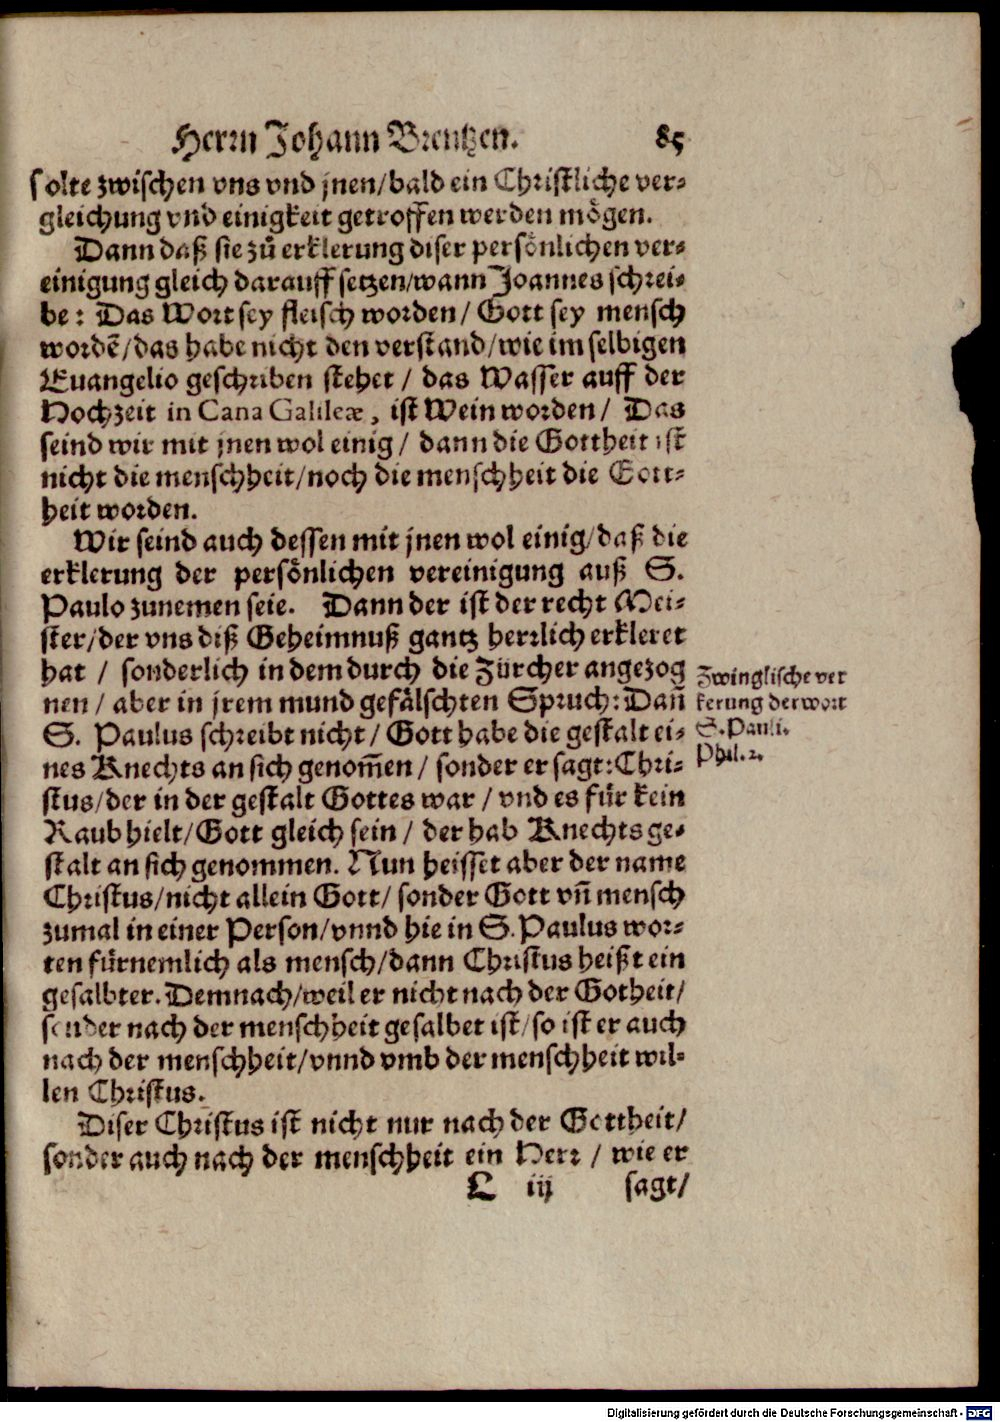 Herrn Johann Brentzen. 85
solte zwischen vns vnd jnen/bald ein Christliche ver-
gleichung vnd einigkeit getroffen werden mögen.
Dann daß sie zů erklerung diser persönlichen ver-
einigung gleich darauff setzen/wann Joannes schrei-
be: Das Wort sey fleisch worden/ Gott sey mensch
wordẽ/das habe nicht den verstand/wie im selbigen
Euangelio geschriben stehet/ das Wasser auff der
Hochzeit in Cana Galileæ, ist Wein worden/ Das
seind wir mit jnen wol einig/ dann die Gottheit ist
nicht die menschheit/noch die menschheit die Gott-
heit worden.
Wir seind auch dessen mit jnen wol einig/daß die
erklerung der persönlichen vereinigung auß S.
Paulo zunemen seie. Dann der ist der recht Mei-
ster/der vns diß Geheimnuß gantz herrlich erkleret
hat / sonderlich in dem durch die Zürcher angezog
nen/ aber in jrem mund gefälschten Spruch: Dañ
S. Paulus schreibt nicht/ Gott habe die gestalt ei-
nes Knechts an sich genom̃en/ sonder er sagt: Chri-
stus/der in der gestalt Gottes war/ vnd es für kein
Raub hielt/Gott gleich sein/ der hab Knechts ge-
stalt an sich genommen. Nun heisset aber der name
Christus/nicht allein Gott/ sonder Gott vñ mensch
zumal in einer Person/vnnd hie in S. Paulus wor-
ten fürnemlich als mensch/dann Christus heißt ein
gesalbter. Demnach/weil er nicht nach der Gotheit/
sonder nach der menschheit gesalbet ist/so ist er auch
nach der menschheit/vnnd vmb der menschheit wil-
len Christus.
Diser Christus ist nicht nur nach der Gottheit/
sonder auch nach der menschheit ein Herr/ wie er
L iij sagt/
Zwinglische ver
kerung der wort
S. Pauli.
Phil. 2.
Digitalisierung gefördert durch die Deutsche Forschungsgemeinschaft - DFG